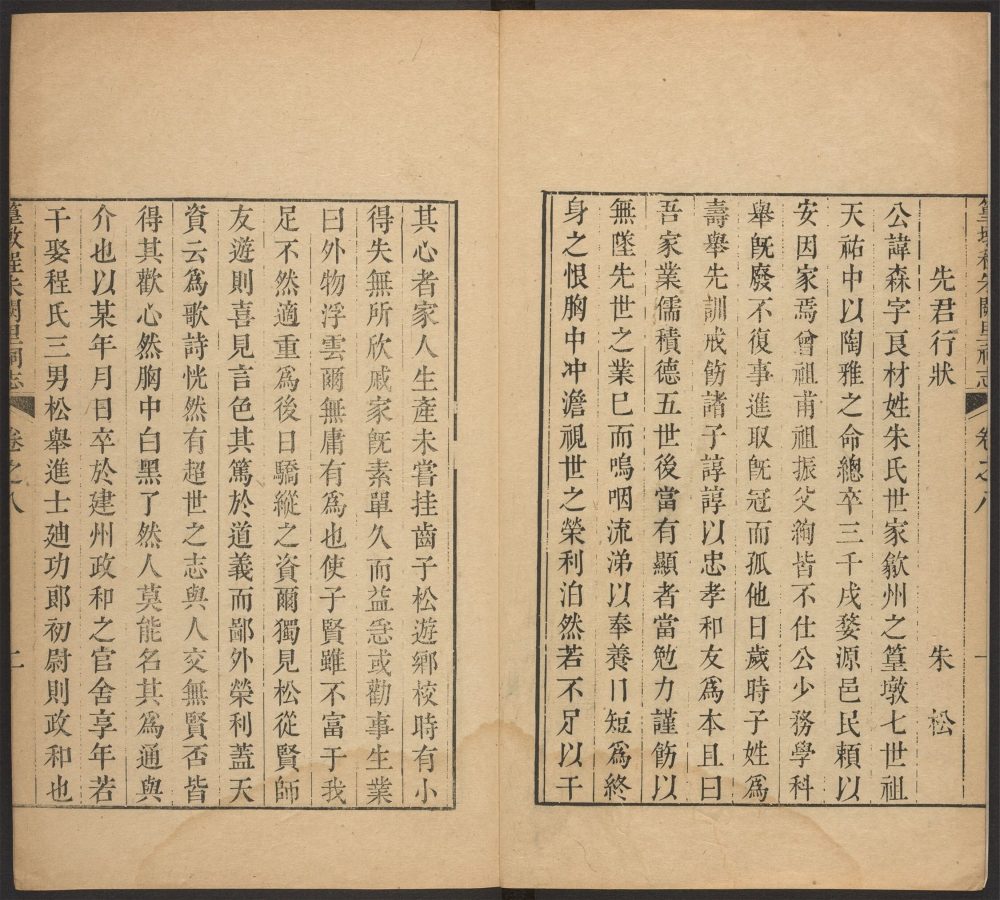 篁墩程朱闕里祠志 卷之八 一
先君行狀 朱松
公諱森字良材姓朱氏世家歙州之篁墩七世祖
天祐中以陶雅之命總卒三千戍婺源邑民頼以
安因家焉曾祖甫祖振父絢皆不仕公少務學科
舉旣廢不復事進取旣冠而孤他日歲時子姓爲
壽舉先訓戒飭諸子諄諄以忠孝和友爲本且曰
吾家業儒積德五世後當有顯者當勉力謹飭以
無墜先世之業已而嗚咽流涕以奉養日短爲終
身之恨胸中冲澹視世之榮利泊然若不足以干
其心者家人生產未嘗挂齒子松遊鄉校時有小
得失無所欣戚家旣素單久而益急或勸事生業
曰外物浮雲爾無庸有爲也使子賢雖不富于我
足不然適重爲後日驕縱之資爾獨見松從賢師
友遊則喜見言色其篤於道義而鄙外榮利蓋天
資云爲歌詩恍然有超世之志與人交無賢否皆
得其歡心然胸中白黑了然人莫能名其爲通與
介也以某年月日卒於建州政和之官舍享年若
干娶程氏三男松舉進士廸功郎初尉則政和也
篁墩程朱闕里祠志 卷之八 二